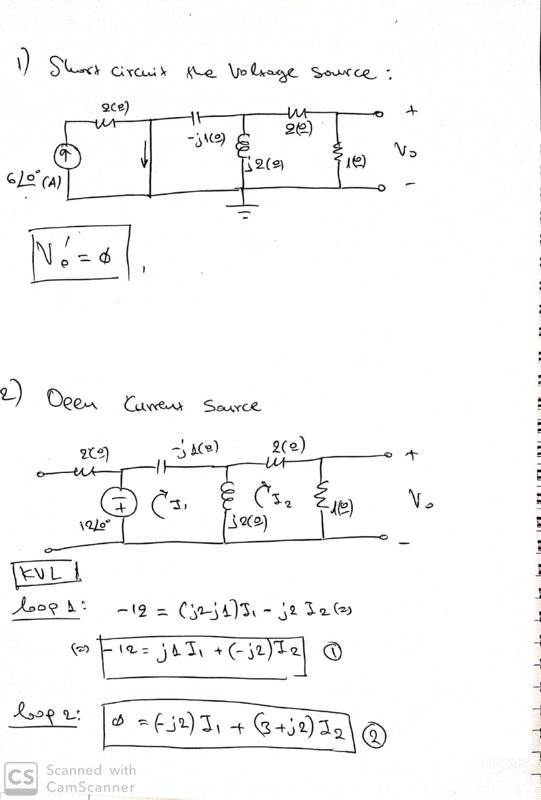 1) Short circuit the Voltage Source :
2(Ω)
-j1(Ω)
2(Ω)
+
6∠0° (A)
j2(Ω)
1(Ω)
Vo
-
Vo' = 0
2) Open Current Source
2(Ω)
-j1(Ω)
2(Ω)
+
- +
12∠0°
I1
j2(Ω)
I2
1(Ω)
Vo
-
KVL
loop 1: -12 = (j2-j1)I1 - j2 I2 (=)
(=) -12 = j1 I1 + (-j2)I2 ①
loop 2: 0 = (-j2) I1 + (3+j2) I2 ②
CS Scanned with
CamScanner